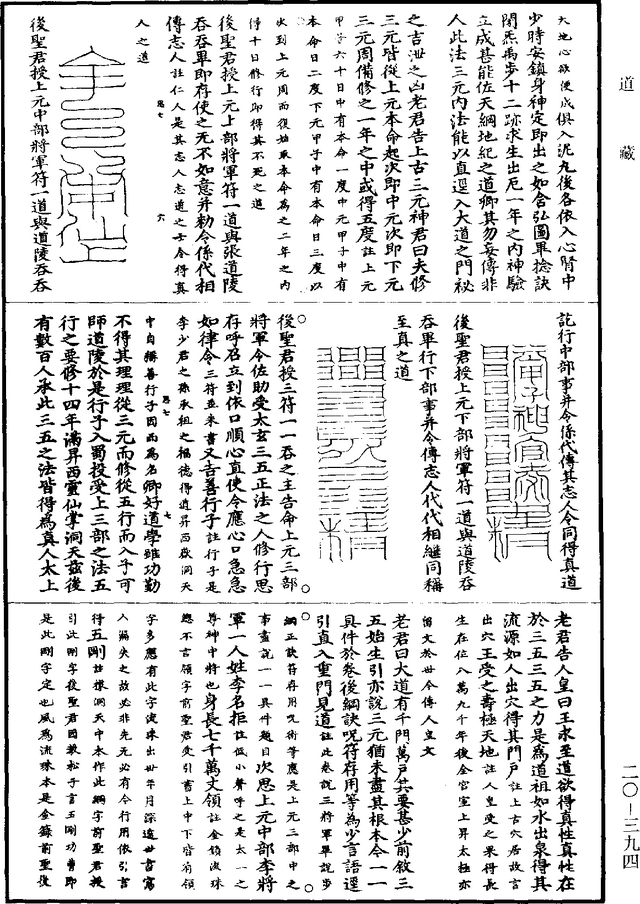 道藏
天地心欲使成俱入泥丸後各依入心腎中
少時安鎮身神定即出之如舍弘圖單捻訣
閉炁禹步十二跡求生出厄一年之內神驗
立成甚能佐天綱地紀之道卿其勿妄傳非
人此法三元內法能以直還入大道之門祕
之吉泄之凶老君告上古三元神君曰夫修
三元皆從上元本命起次即中元次即下元
三元周備修之一年之中或得五度註上元
甲子六十日中有本命一度中元甲子中有
本命日二度下元甲子中有本命日三度以
次到上元周而復始取本命為之二年之內
得十日修行即得其不死之道
後聖君授上元上部將軍符一道與張道陵
吞吞畢即存使之無不如意并勅令係代相
傳志人註仁人是其志人志道之士令得真
卷七 六
人之道
後聖君授上元中部將軍符一道與道陵吞吞
訖行中部事并令係代傳其志人令同得真道
後聖君授上元下部將軍符一道與道陵吞
吞畢行下部事并令傳志人代代相繼同稱
至真之道
後聖君授三符一一吞之主告命上元三部
將軍令佐助受太玄三五正法之人修行思
存呼召立到依口順心直使令應心口急急
如律令三符並朱書又吉善行子註行子是
李少君之孫承祖之福德得道昇西嶽洞天
卷七 七
中自稱善行子因而為名卿好道學雖功勤
不得其理理從三元而修從五行而入子可
師道陵於是行子入蜀投受上三部之法五
行之要修十四年滿昇西靈仙掌洞天茲後
有數百人承此三五之法皆得為真人太上
老君告人皇曰王求至道欲得真性真性在
於三五三五之力是為道祖如水出泉得其
流源如人出穴得其門戶註上古穴居故言
出穴王受之壽極天地註人皇受之果得長
生在位八萬九千年後金宮室上昇太極亦
留文於世令傳人皇文
老君曰大道有千門萬戶其要甚少前敘三
五始生引亦說三元猶未盡其根本令一一
具件於卷後綱訣呪符存用等為少言語逕
引直入重門見道註此卷說三將軍畢說步
綱正訣符存用呪術等應是上元三部中之四
事盡說一一具件題目次思上元中部李將
軍一人姓李名拒註低小聲呼之是太一之
尊神中將也身長七千萬丈領註金鎖流珠
總不言領字前聖君受引書上中下皆有領
字多應有此字流珠出世年月深遠世書寫
人漏失之故必非先无必有今行用依引言
得五剛註據洞天中本作此綱字前聖君授
引此剛字後聖君因教松子言五剛功曹即
是此剛字定也風為流珠本是金籙前聖後
二〇—三九四